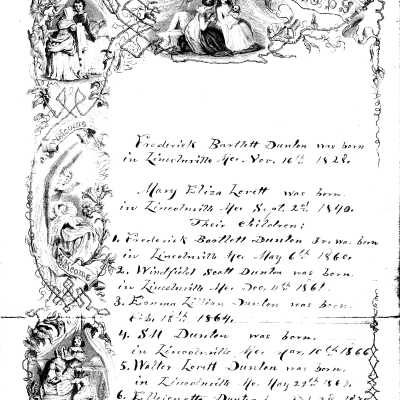 Frederick Bartlett Dunton was born
in Lincolnville Me. Nov. 16th 1828.
Mary Eliza Lovett was born
in Lincolnville Me Sept. 22nd 1840.
Their Children:
1. Frederick Bartlett Dunton Jr. was born
in Lincolnville Me May 6th 1860.
2. Windfield Scott Dunton was born
in Lincolnville Me. Dec. 11th 1861.
3. Emma Lillian Dunton was born
Feb. 18th 1864.
4. S.H Dunton was born
in Lincolnville Me. 10th 1866
5. Walter Lovett Dunton was born
in Lincolnville Me. May 29th
6.
WELCOME